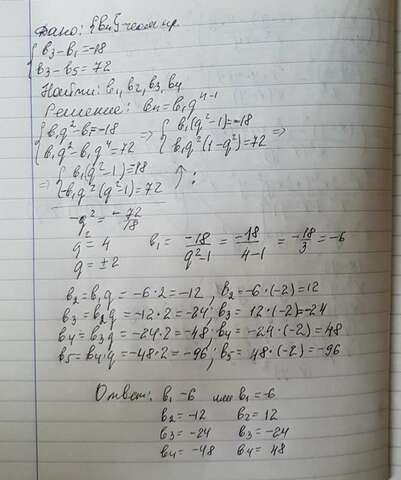 Дано: {bn} - геом. пр.
{ b3 - b1 = -18
b3 - b5 = 72
Найти: b1, b2, b3, b4
Решение: bn = b1q^n-1
{ b1q² - b1 = -18 => { b1(q² - 1) = -18 =>
b1q² - b1q⁴ = 72 b1q²(1 - q²) = 72
=> { b1(q² - 1) = 18 ↑ :
-b1q²(q² - 1) = 72
-q² = -72/18
q² = 4 b1 = -18/q²-1 = -18/4-1 = -18/3 = -6
q = ±2
b2 = b1q = -6·2 = -12, b2 = -6·(-2) = 12
b3 = b2q = -12·2 = -24; b3 = 12·(-2) = -24
b4 = b3q = -24·2 = -48; b4 = -24·(-2) = 48
b5 = b4·q = -48·2 = -96; b5 = 48·(-2) = -96
Ответ: b1 -6 или b1 = -6
b2 = -12 b2 = 12
b3 = -24 b3 = -24
b4 = -48 b4 = 48